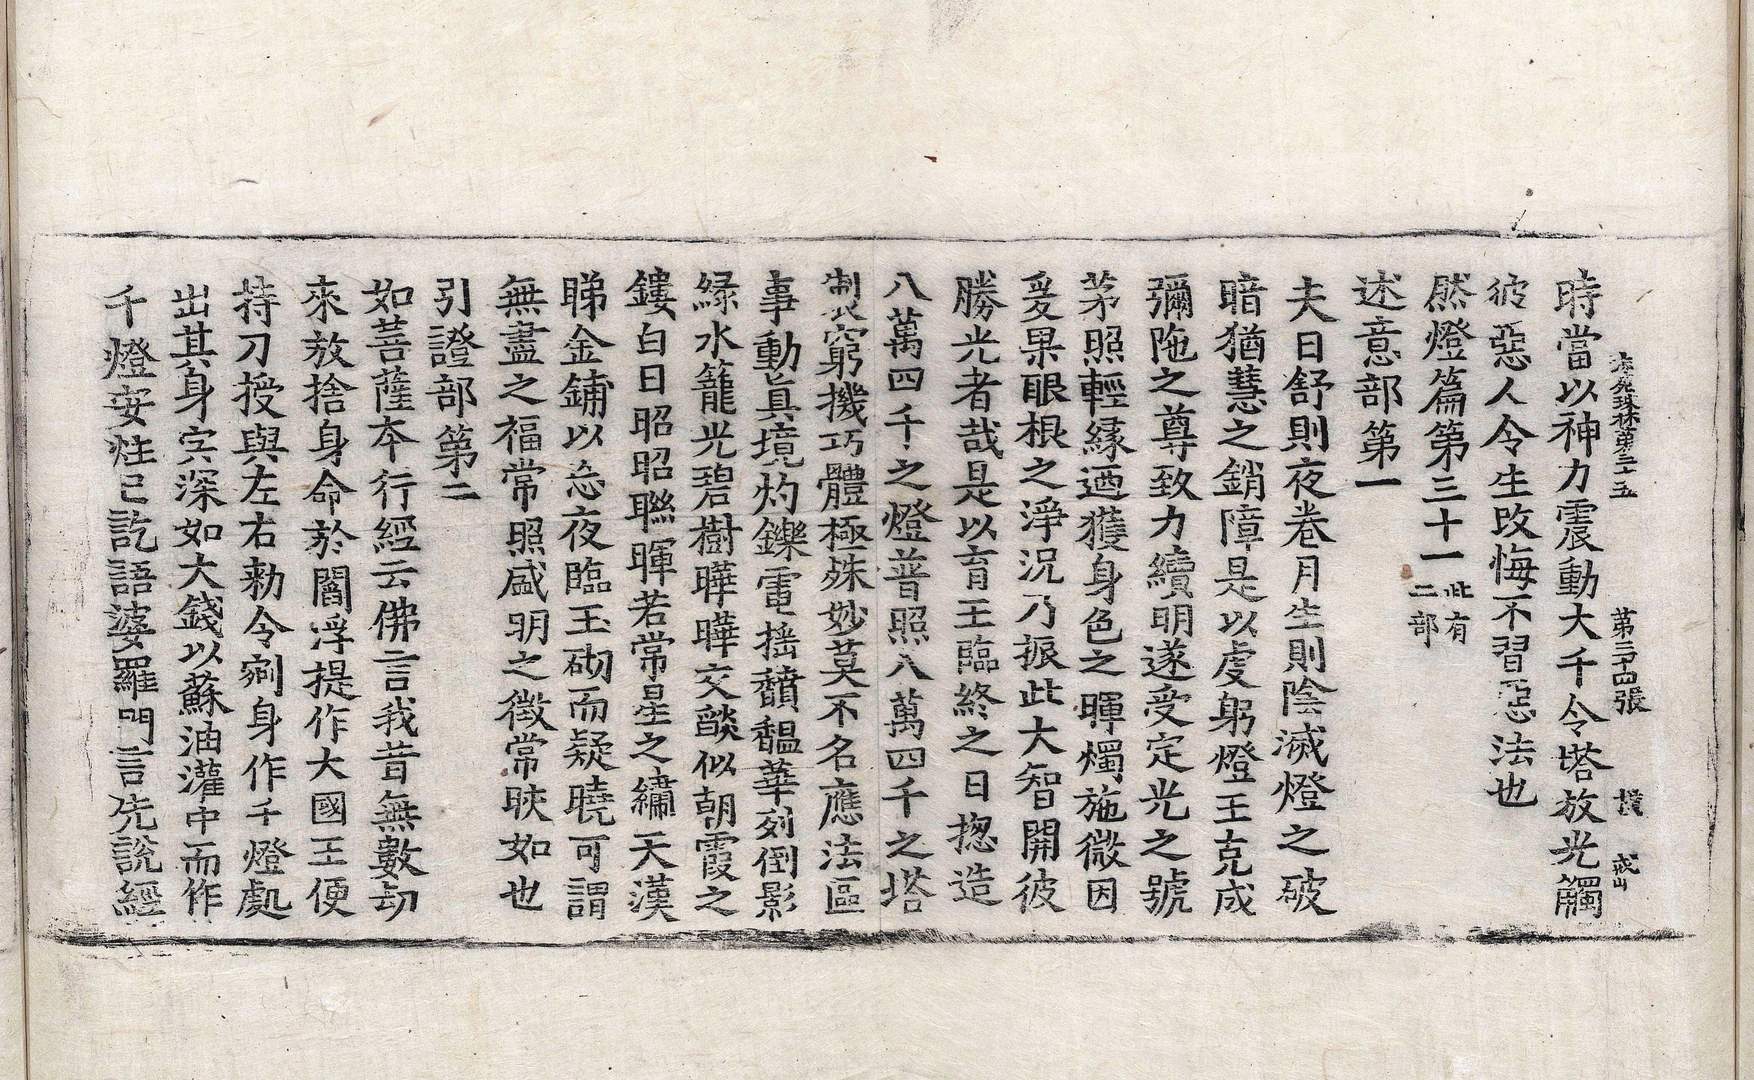 法苑珠林第三十五 第三十四張 戒
時當以神力震動大千令塔放光觸
彼惡人令生改悔不習惡法也
然燈篇第三十一 此有二部
述意部第一
夫日舒則夜卷月生則陰滅燈之破
暗猶慧之銷障是以虔躬燈王克成
彌陁之尊致力續明遂受定光之號
茅照輕緣迺獲身色之暉燭施微因
爰果眼根之淨況乃振此大智開彼
勝光者哉是以育王臨終之日揔造
八萬四千之燈普照八萬四千之塔
制衣窮機巧體極殊妙莫不名應法區
事動眞境灼鑠電搖馩馧華列倒影
綠水籠光碧樹曄曄交燄似朝霞之
鏤白日昭昭聯暉若常星之繡天漢
睇金鋪以忘夜臨玉砌而疑曉可謂
無盡之福常照咸明之徵常映如也
引證部第二
如菩薩本行經云佛言我昔無數劫
來放捨身命於閻浮提作大國王便
持刀授與左右勑令剜身作千燈處
出其身宍深如大錢以蘇油灌中而作
千燈安炷已訖語婆羅門言先說經